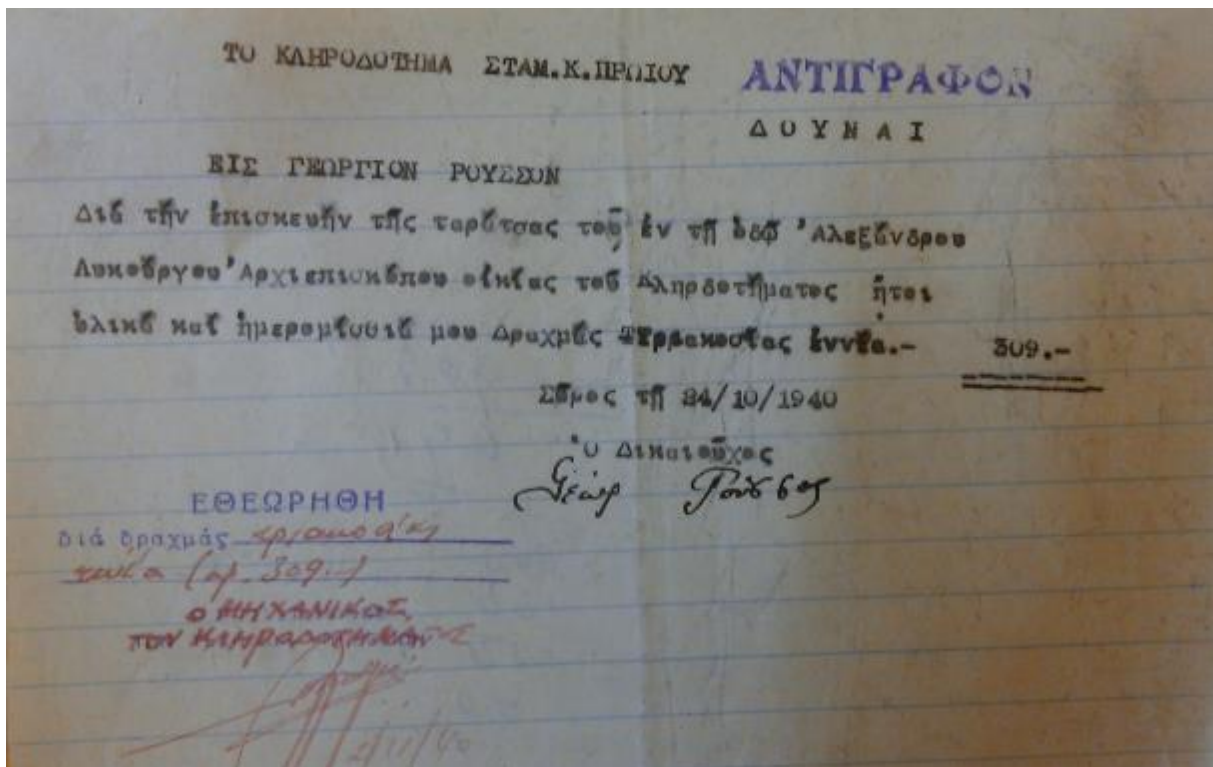 ΤΟ ΚΛΗΡΟΔΟΤΗΜΑ ΣΤΑΜ.Κ.ΠΡΩΙΟΥ ΑΝΤΙΓΡΑΦΟΝ
ΔΟΥΝΑΙ
ΕΙΣ ΓΕΩΡΓΙΟΝ ΡΟΥΣΣΟΝ
Διά τήν ἐπισκευήν τῆς ταράτσας τοῦ ἐν τῇ ὁδῷ 'Αλεξάνδρου
Λυκούργου 'Αρχιεπισκόπου οἰκίας τοῦ Κληροδοτήματος ἤτοι
ὑλικά καί ἡμερομίσθιά μου Δραχμάς έννέα.- 309.-
Σῦρος τῇ 24/10/1940
Ὁ Δικαιοῦχος
Γεώρ Ροῦσσος
ΕΘΕΩΡΗΘΗ
διά δραχμάς τριακοσίας
εννέα (αρ. 309.-)
Ο ΜΗΧΑΝΙΚΟΣ
ΤΟΥ ΚΛΗΡΟΔΟΤΗΜΑΤΟΣ